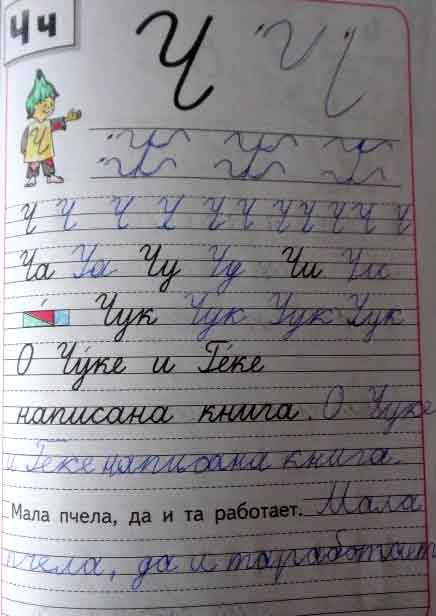 Ч ч
Ч
Ч Ч Ч Ч Ч Ч Ч Ч Ч Ч Ч
Ча Ча Чу Чу Чи Чи
Чук Чук Чук Чук
О Чу́ке и Ге́ке
написана книга. О Чуке
и Геке написана книга.
Мала пчела, да и та работает. Мала
пчела, да и та работает